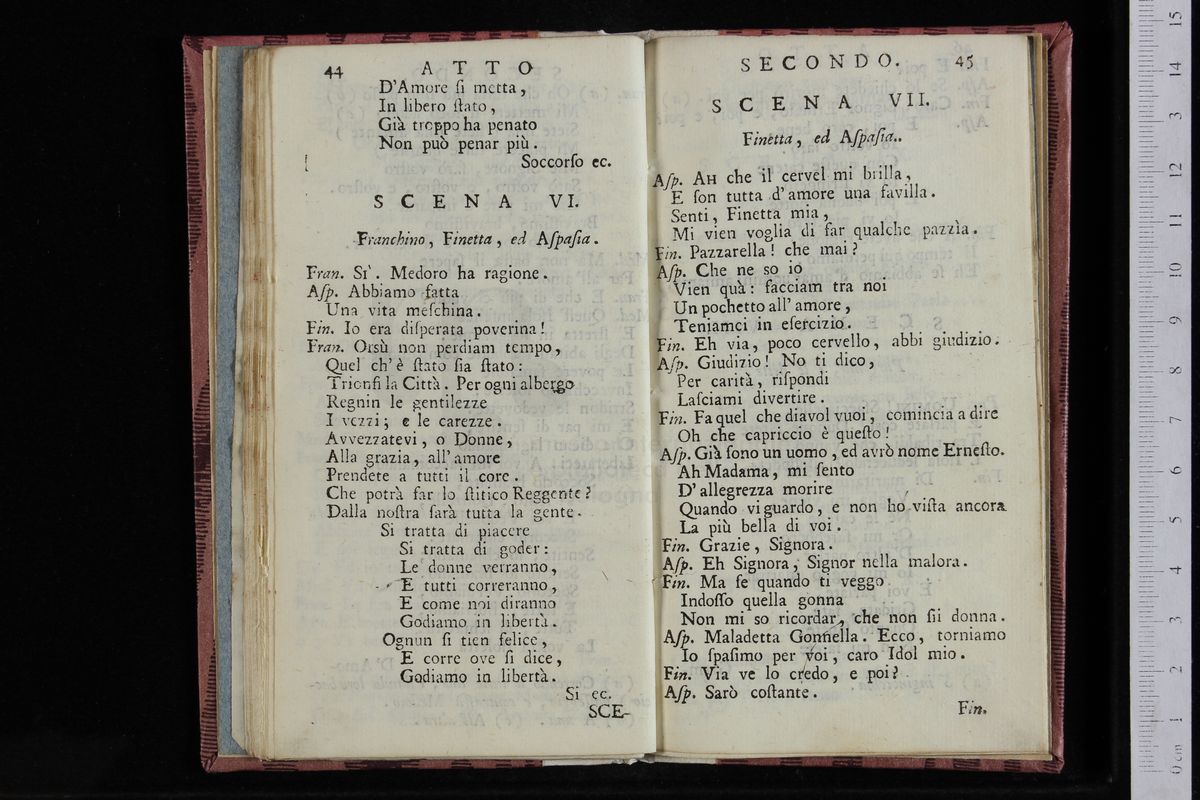 44 ATTO
D'Amore ſi metta,
In libero ſtato,
Già troppo ha penato
Non può penar più.
Soccorſo ec.
SCENA VI.
Franchino, Finetta, ed Aſpaſia.
Fran. Sì. Medoro ha ragione.
Aſp. Abbiamo fatta
Una vita meſchina.
Fin. Io era diſperata poverina!
Fran. Orsù non perdiam tempo,
Quel ch'è ſtato ſia ſtato:
Trionfi la Città. Per ogni albergo
Regnin le gentilezze
I vezzi; e le carezze.
Avvezzatevi, o Donne,
Alla grazia, all'amore
Prendete a tutti il core.
Che potrà far lo ſtitico Reggente?
Dalla noſtra ſarà tutta la gente.
Si tratta di piacere
Si tratta di goder:
Le donne verranno,
E tutti correranno,
E come noi diranno
Godiamo in libertà.
Ognun ſi tien felice,
E corre ove ſi dice,
Godiamo in libertà.
Si ec.
SCE-
SECONDO. 45
SCENA VII.
Finetta, ed Aſpaſia..
Aſp. AH che il cervel mi brilla,
E ſon tutta d'amore una favilla.
Senti, Finetta mia,
Mi vien voglia di far qualche pazzìa.
Fin. Pazzarella! che mai?
Aſp. Che ne so io
Vien quà: facciam tra noi
Un pochetto all'amore,
Teniamci in eſercizio.
Fin. Eh via, poco cervello, abbi giudizio.
Aſp. Giudizio! No ti dico,
Per carità, riſpondi
Laſciami divertire.
Fin. Fa quel che diavol vuoi, comincia a dire
Oh che capriccio è queſto!
Aſp. Già ſono un uomo, ed avrò nome Erneſto.
Ah Madama, mi ſento
D'allegrezza morire
Quando vi guardo, e non ho viſta ancora
La più bella di voi.
Fin. Grazie, Signora.
Aſp. Eh Signora, Signor nella malora.
Fin. Ma ſe quando ti veggo
Indoſſo quella gonna
Non mi so ricordar, che non ſii donna.
Aſp. Maladetta Gonnella. Ecco, torniamo
Io ſpaſimo per voi, caro Idol mio.
Fin. Via ve lo credo, e poi?
Aſp. Sarò coſtante.
Fin.
0 cm 1 2 3 4 5 6 7 8 9 10 11 12 13 14 15